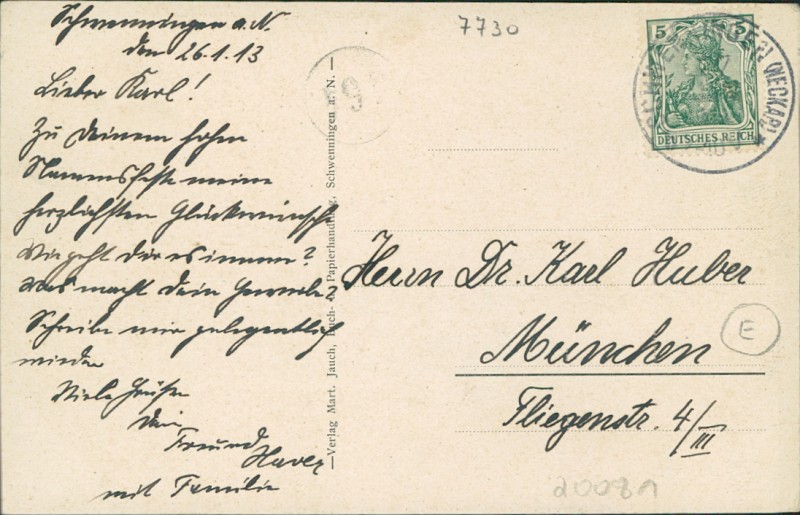 Schwenningen a. N.
den 26.1.13
Lieber Karl!
Zu Deinem hohen
Namensfeste meine
herzlichsten Glückwünsche
Wie geht dir es immer?
Was macht dein
Schreibe mir gelegentlich
wieder
Viele Grüße
Dein
Freund
mit Familie
7730
19
—Verlag Mart. Jauch, Buch- u. Papierhandlung, Schwenningen a. N.—
5 5
DEUTSCHES REICH
SCHWENNINGEN (NECKAR) *
Herrn Dr. Karl Huber
München
Fliegenstr. 4/III
E
20089